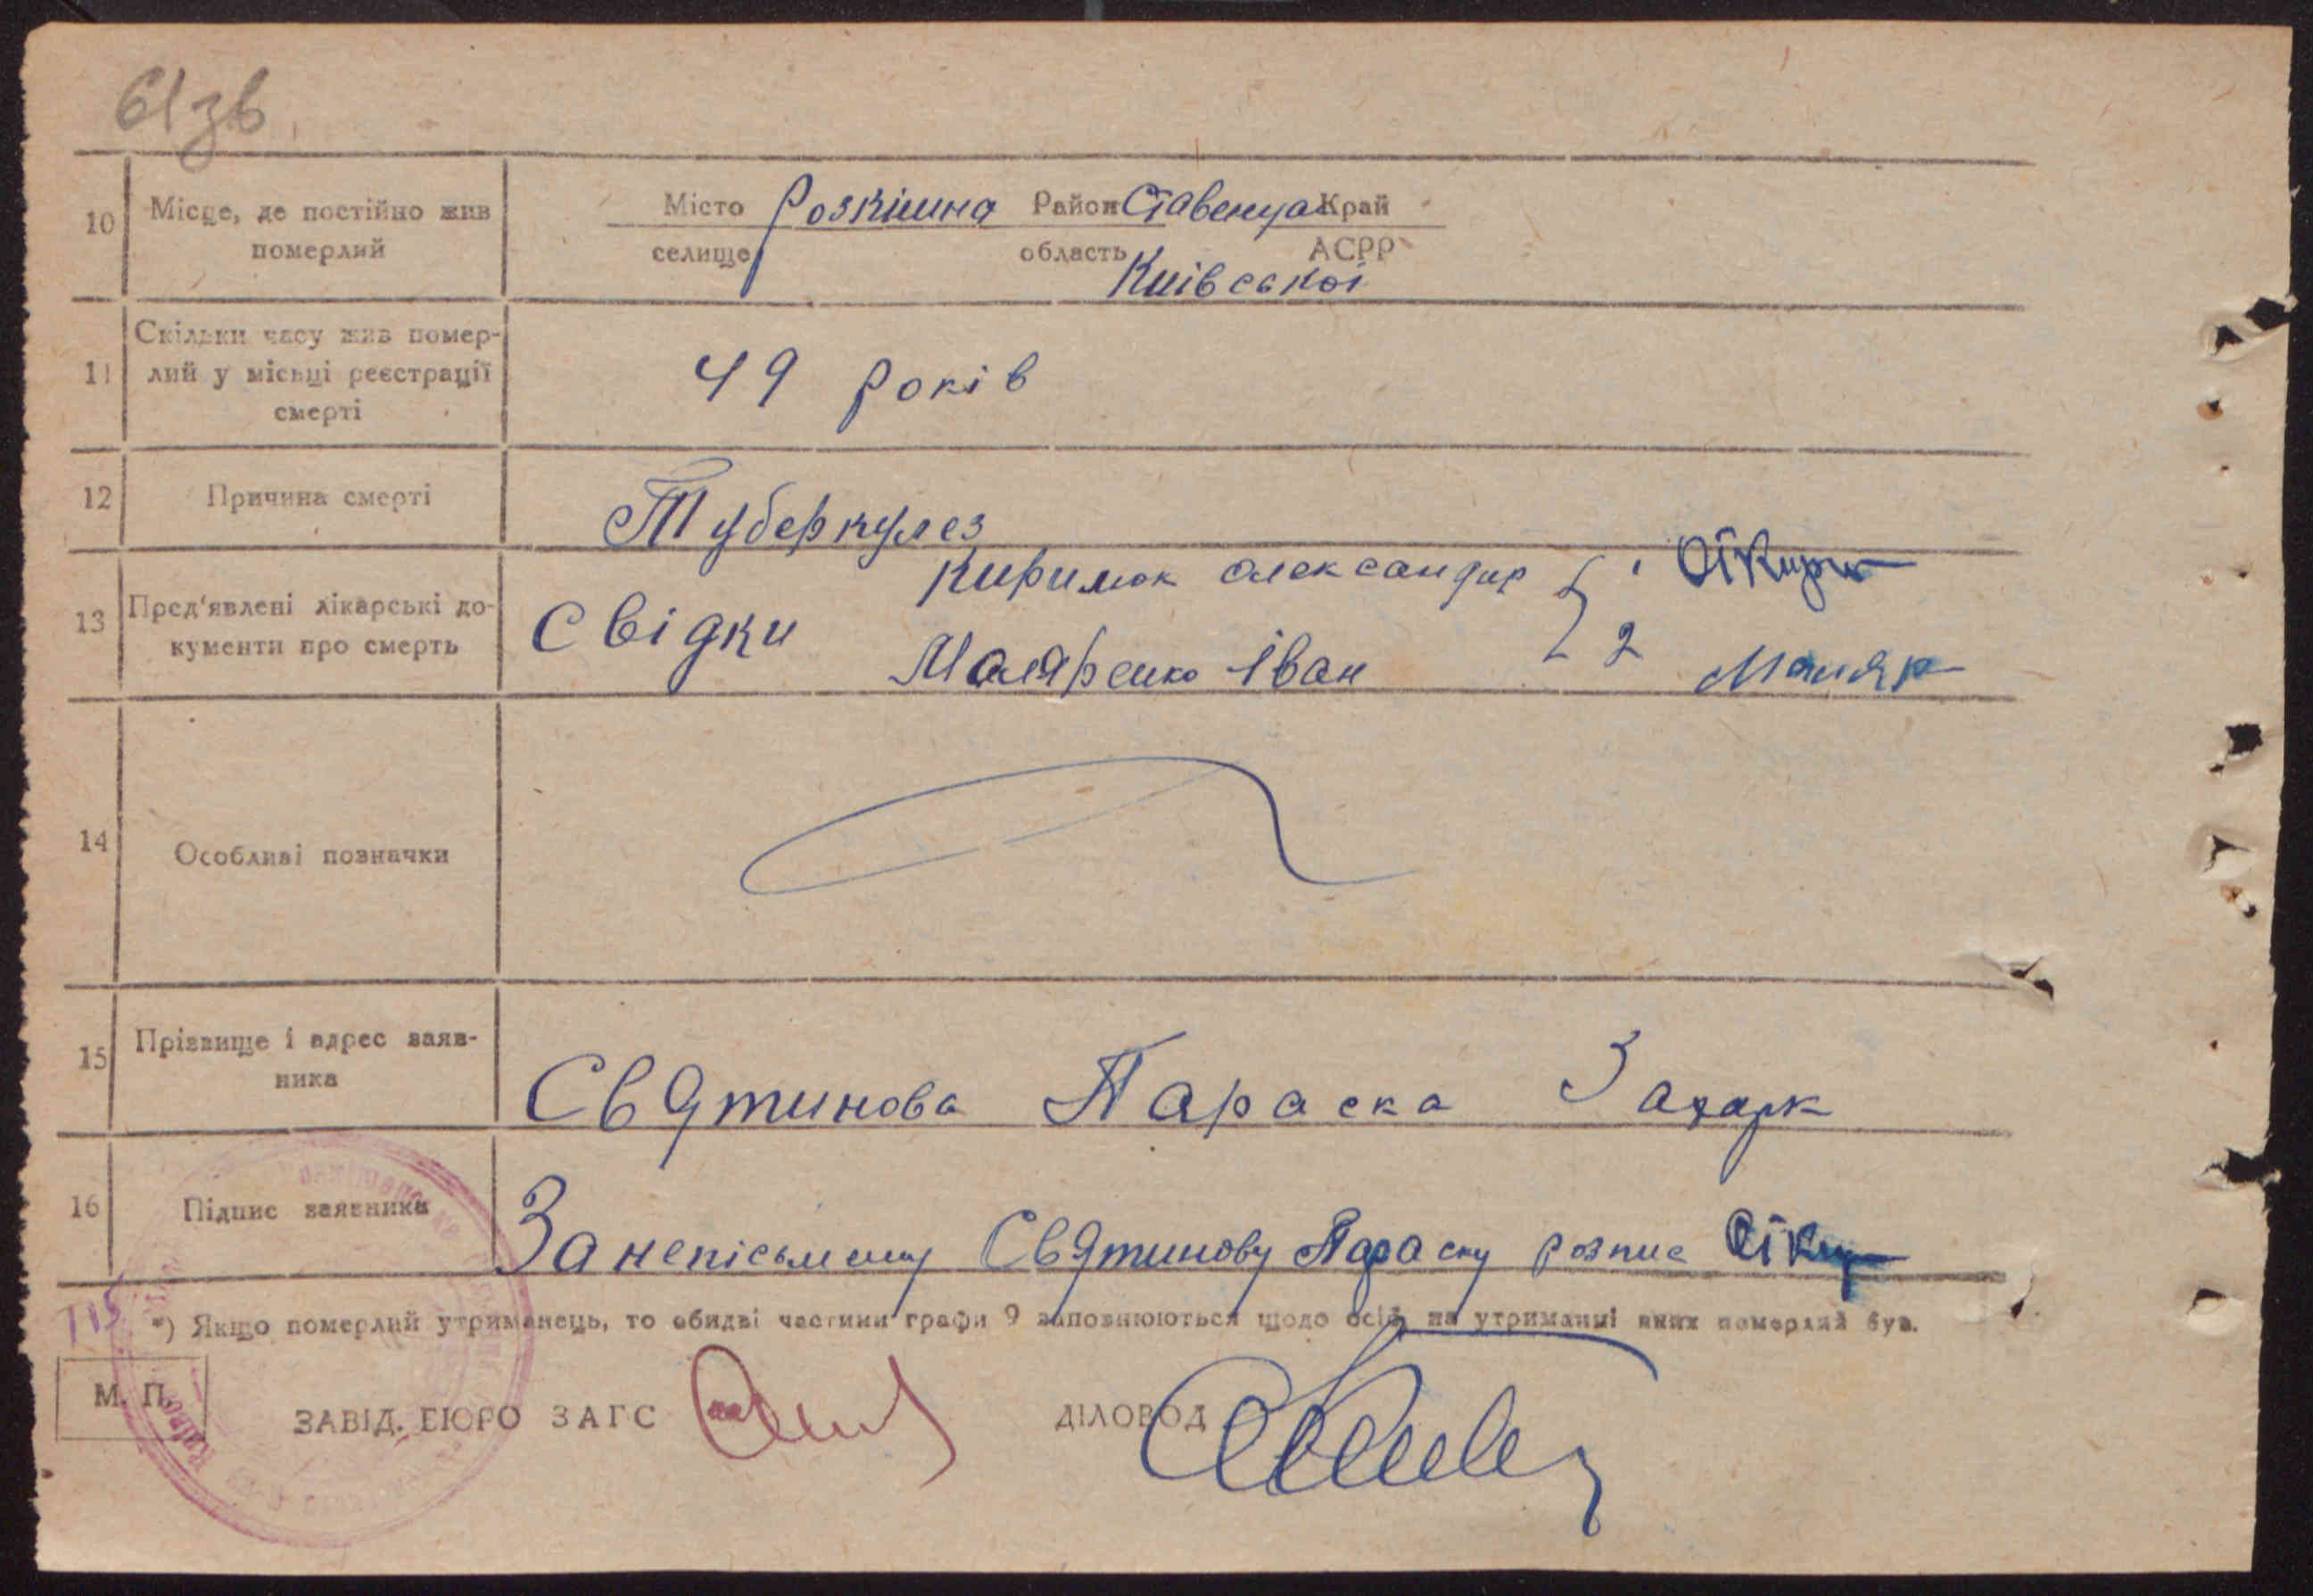 61зв
10 Місце, де постійно жив померлий
Місто Розкішна Район Ставенча Край
селище область АСРР
Київської
11 Скільки часу жив помер-
лий у місьці реєстрації
смерті
49 років
12 Причина смерті
Туберкулез
13 Пред'явлені лікарські до-
кументи про смерть
Свідки
Киримок Олександир 1
Маляренко Іван 2 Маляр
14 Особливі позначки
15 Прізвище і адрес заяв-
ника
Святинова Параска Захарк
16 Підпис заявника
За непісьмену Святинову Параску розпис
115
*) Якщо померлий утриманець, то обидві частини графи 9 заповнюються щодо осіб, на утриманні яких померлий був.
М. П.
ЗАВІД. БЮРО ЗАГС ДІЛОВОД